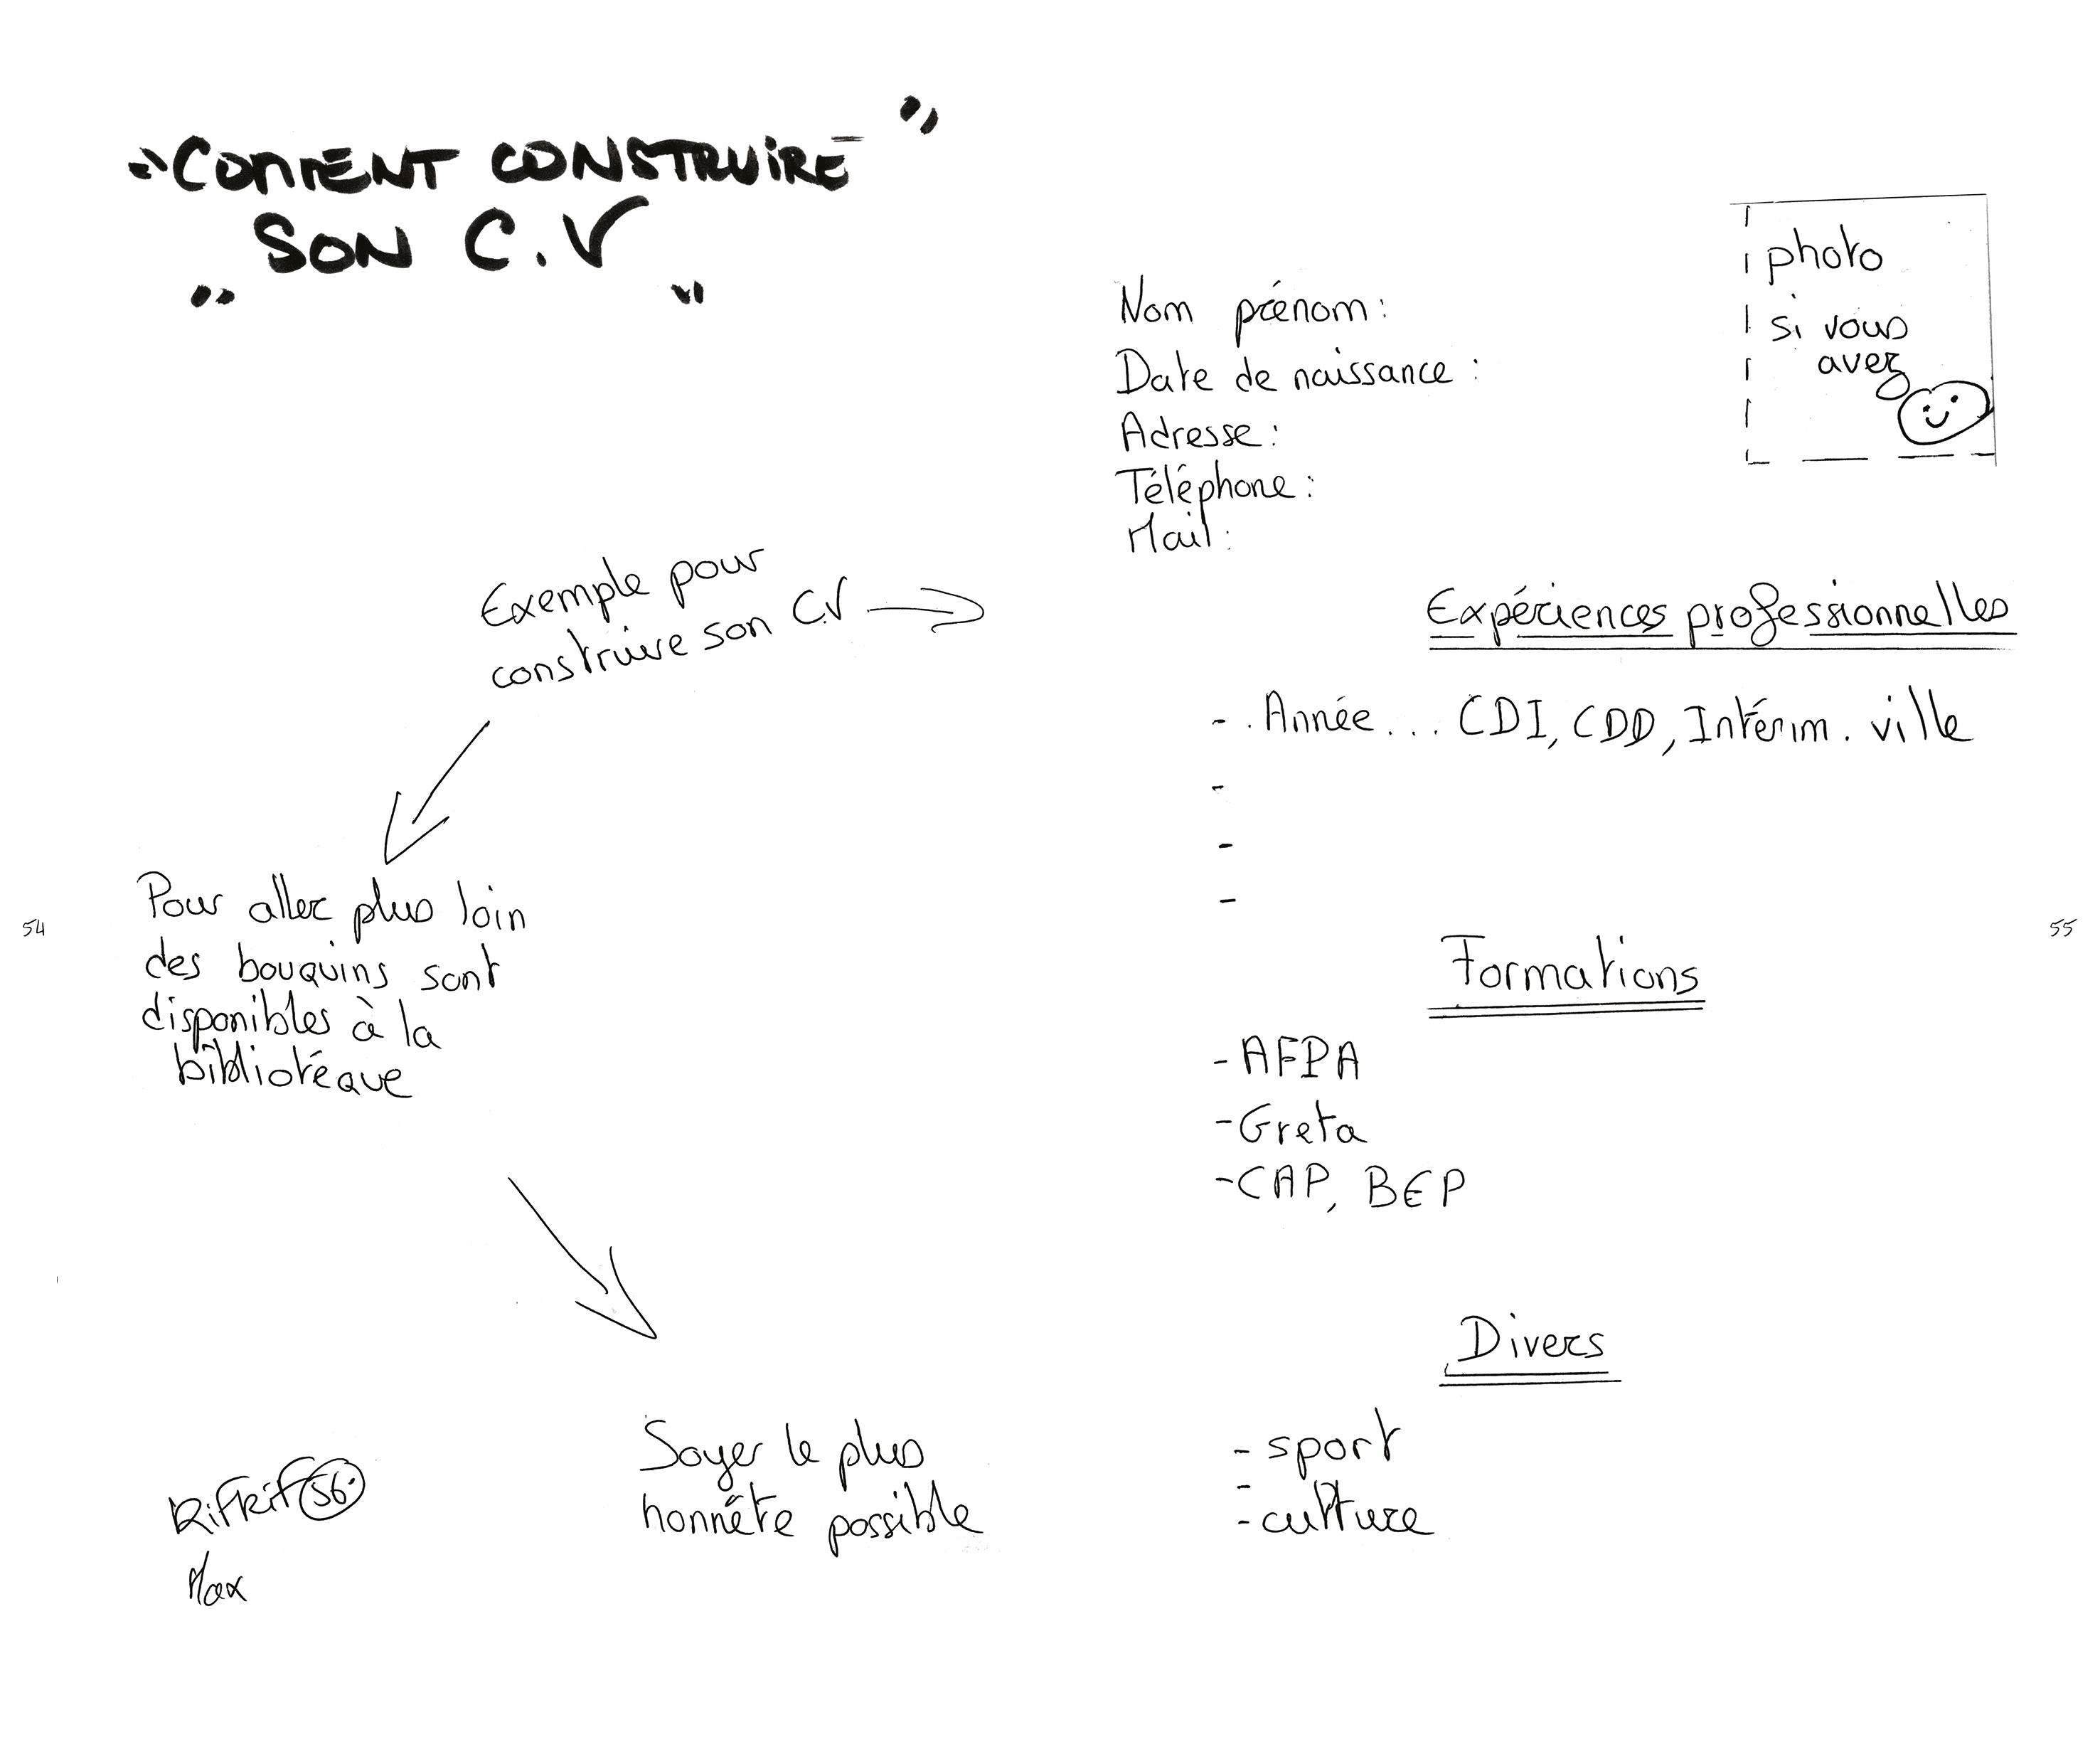 "COMMENT CONSTRUIRE"
"SON C.V"
Exemple pour
construire son C.V
Pour aller plus loin
des bouquins sont
disponibles à la
bibliotéque
Soyer le plus
honnête possible
Max
54
Nom prénom:
Date de naissance :
Adresse:
Téléphone:
Mail:
photo
si vous
avez
Expériences professionnelles
- . Année... CDI, CDD, Intérim. ville
-
-
-
Formations
- AFPA
- Greta
- CAP, BEP
Divers
- sport
-
- culture
55